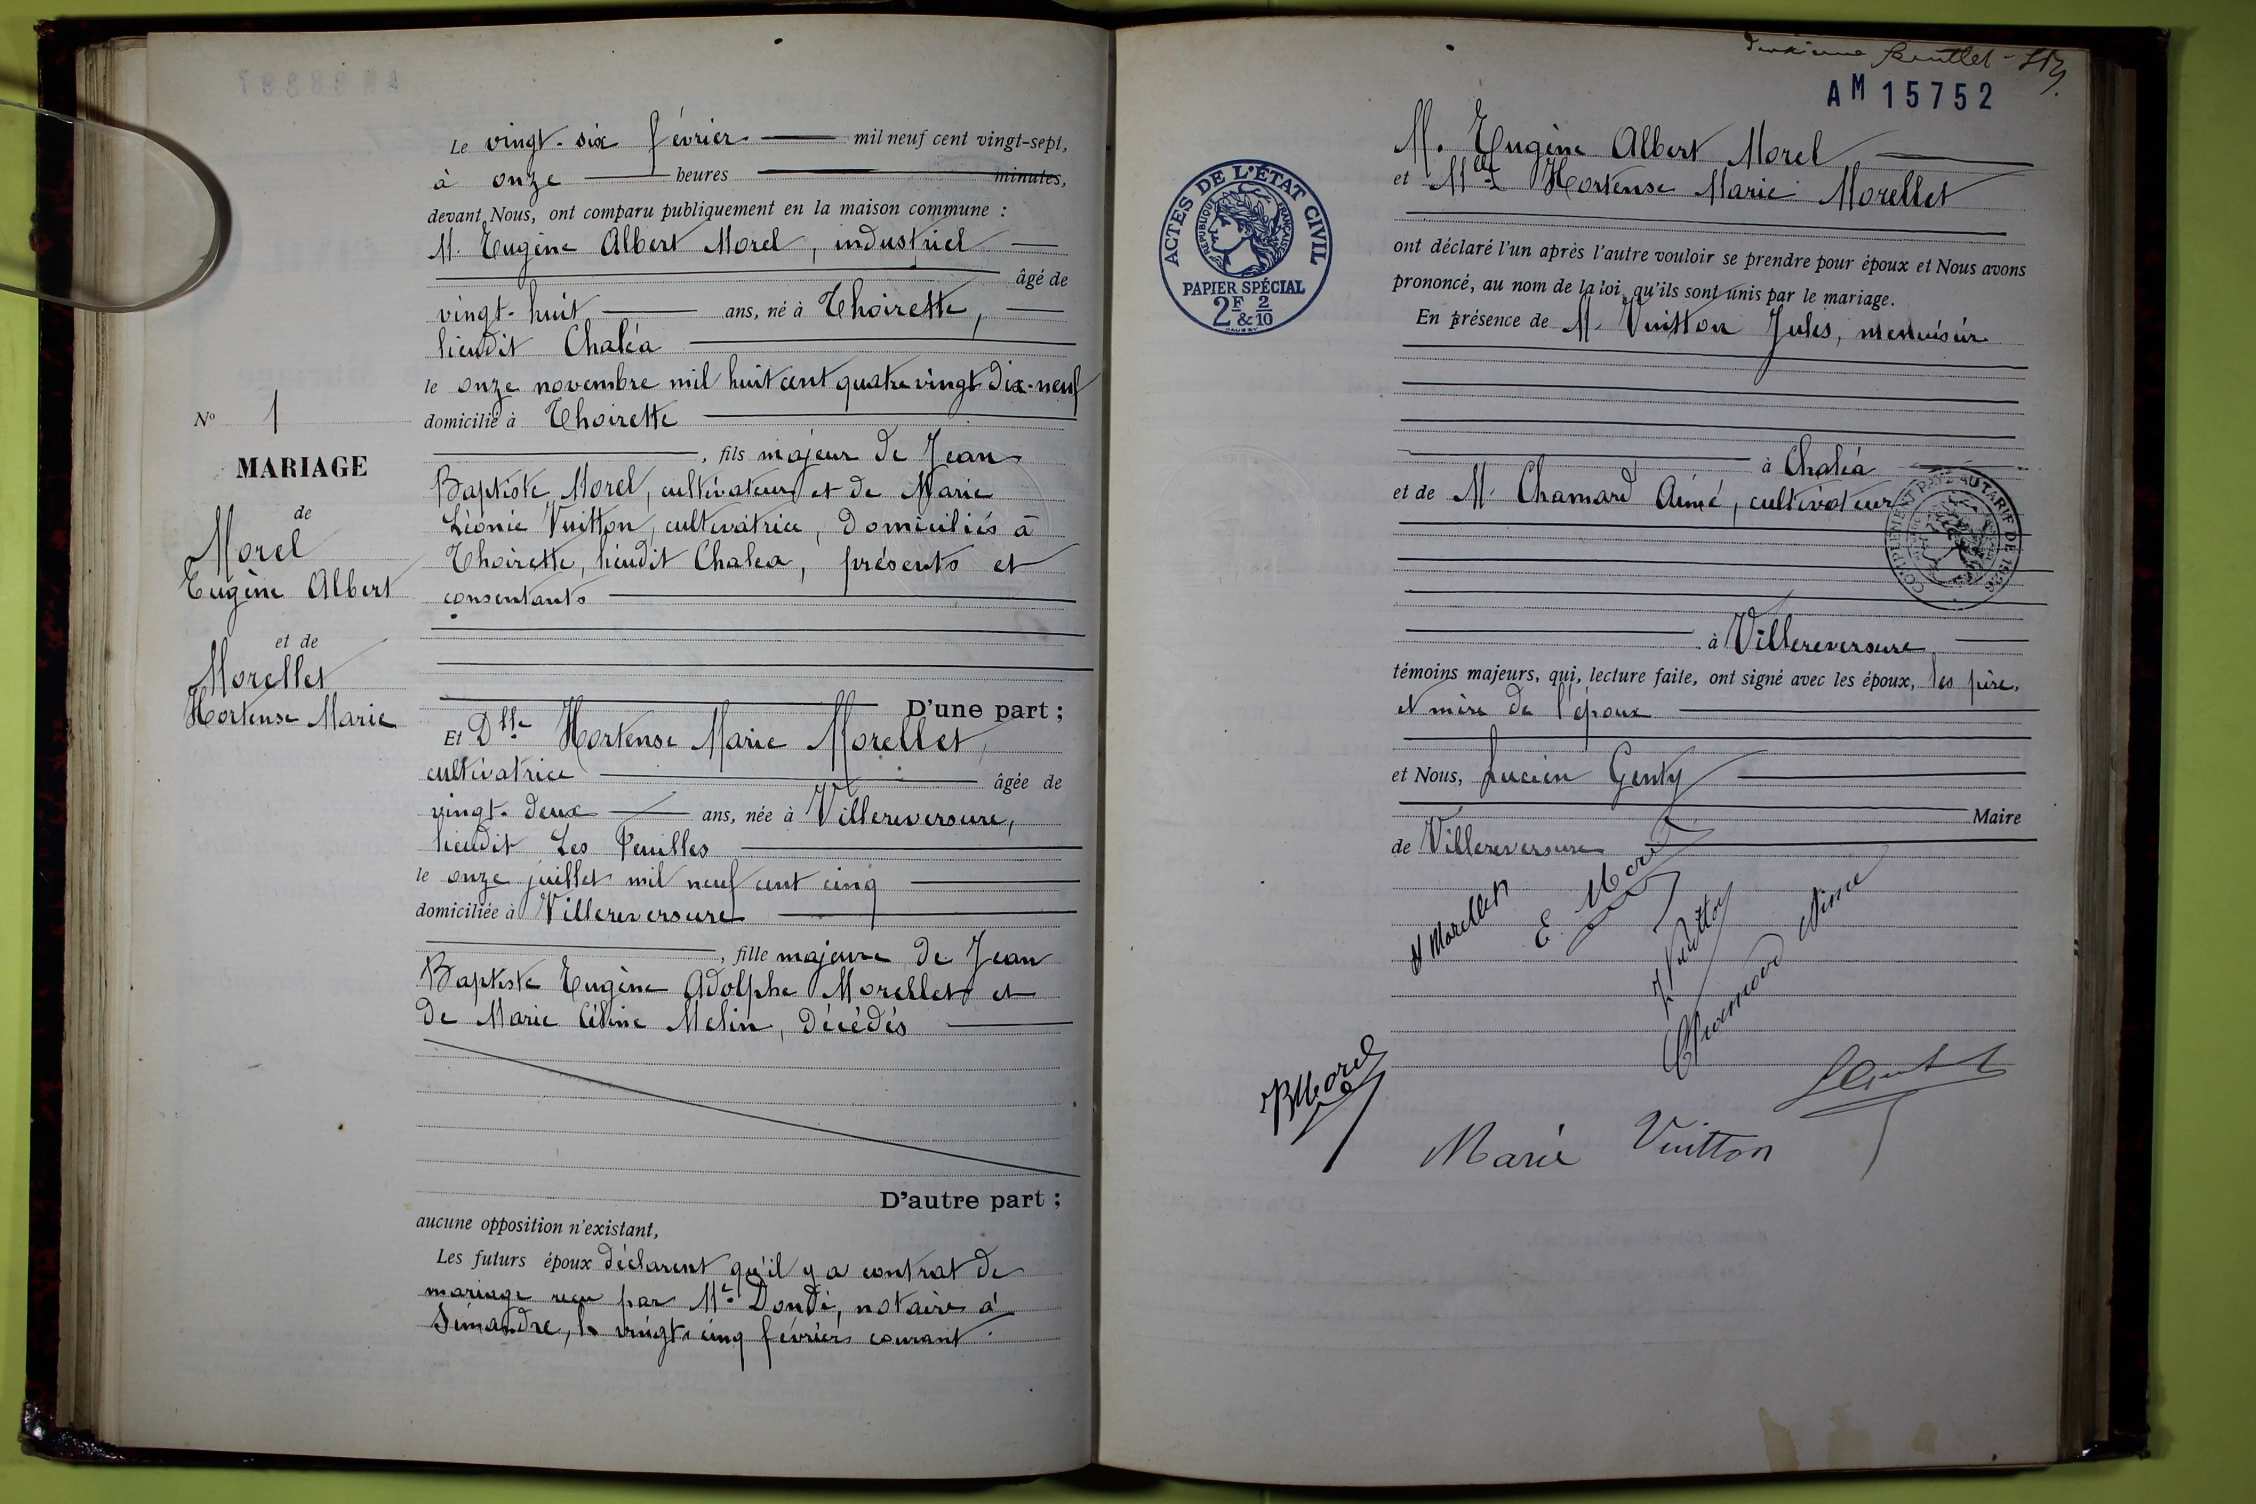 Le vingt-six février mil neuf cent vingt-sept,
à onze heures minutes,
devant Nous, ont comparu publiquement en la maison commune :
M. Eugène Albert Morel, industriel
âgé de
vingt-huit ans, né à Thoirette,
lieudit Chaléa
le onze novembre mil huit cent quatre vingt dix-neuf
domicilié à Thoirette
, fils majeur de Jean
Baptiste Morel, cultivateur et de Marie
Léonie Vuitton, cultivatrice, domiciliés à
Thoirette, lieudit Chaléa, présents et
consentants
D'une part ;
Et Dlle Hortense Marie Morellet,
cultivatrice âgée de
vingt-deux ans, née à Villereversure,
lieudit Les Feuilles
le onze juillet mil neuf cent cinq
domiciliée à Villereversure
, fille majeure de Jean
Baptiste Eugène Adolphe Morellet et
de Marie Céline Melin, décédés
D'autre part ;
aucune opposition n'existant,
Les futurs époux déclarent qu'il y a contrat de
mariage reçu par Me Dondé, notaire à
Simandre, le vingt-cinq février courant.
No 1
MARIAGE
de
Morel
Eugène Albert
et de
Morellet
Hortense Marie
deuxième feuillet
AM 15752
M. Eugène Albert Morel
et Melle Hortense Marie Morellet
ont déclaré l'un après l'autre vouloir se prendre pour époux et Nous avons
prononcé, au nom de la loi, qu'ils sont unis par le mariage.
En présence de M. Vuitton Jules, menuisier
à Chaléa
et de M. Chamard Aimé, cultivateur
à Villereversure
témoins majeurs, qui, lecture faite, ont signé avec les époux, les père,
et mère de l'époux
et Nous, Lucien Genty
Maire
de Villereversure
H Morellet
E. Morel
J Vuitton
Chamard Aimé
B Morel
Marie Vuitton
ACTES DE L'ÉTAT CIVIL
RÉPUBLIQUE FRANÇAISE
PAPIER SPÉCIAL
2F & 2/10
COMPLÉMENT PAYÉ AU TARIF DE 1926